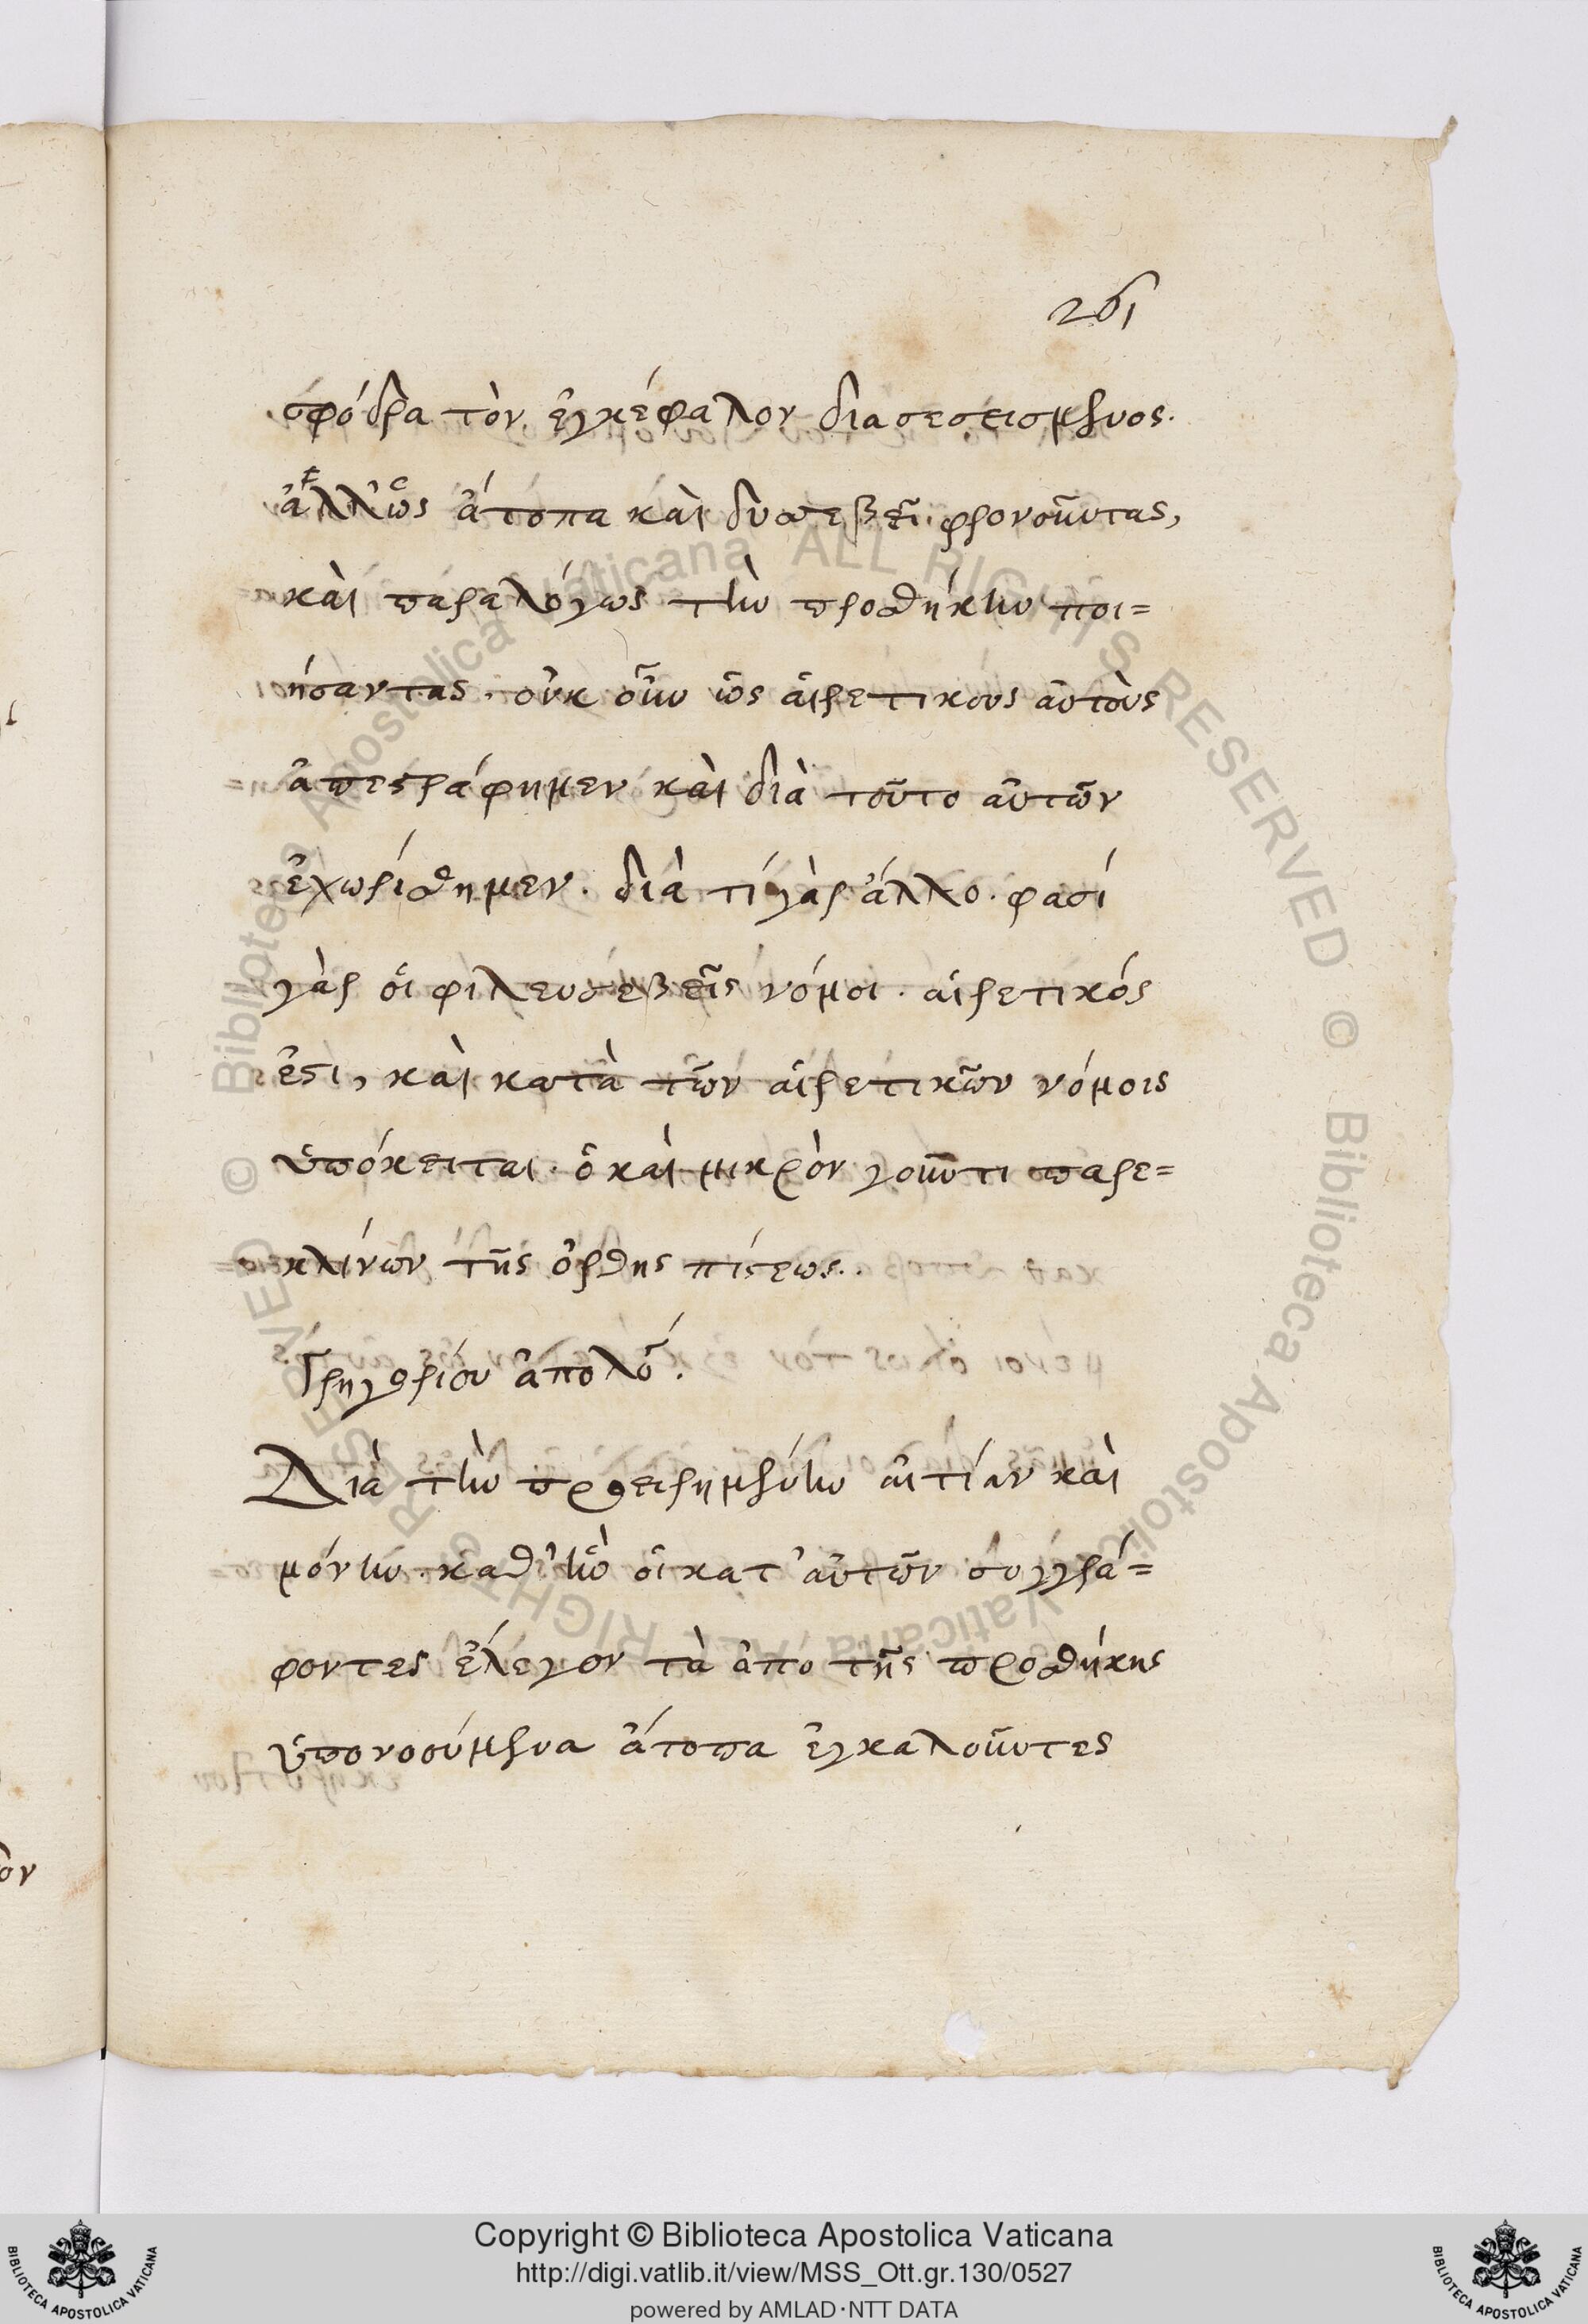 261
σφόδρα τὸν ἐγκέφαλον διασεσεισμένος.
ἀλλ' ὡς ἄτοπα καὶ δυσεβεῖ φρονοῦντας,
καὶ παραλόγως τὴν προσθήκην ποι=
ήσαντας. οὐκ οὖν ὡς αἱρετικους αὐτοὺς
ἀπεστράφημεν καὶ διὰ τοῦτο αὐτῶν
ἐχωρίσθημεν. διὰ τί γὰρ ἄλλο. φασί
γὰρ οἱ φιλευσεβεῖς νόμοι. αἱρετικός
ἐστι, καὶ κατὰ τῶν αἱρετικῶν νόμοις
ὑπόκειται. ὁ καὶ μικρὸν γοῦν τι παρε=
κλίνων τῆς ὀρθης πίστεως.
Γρηγορίου ἀπολό.
Διὰ τὴν προειρημένην αἰτίαν καὶ
μόνην. καθ' ἣν οἱ κατ' αὐτῶν συγγρά=
φοντες ἔλεγον τὰ ἀπο τῆς προσθήκης
ὑπονοούμενα ἄτοπα ἐγκαλοῦντες
Copyright © Biblioteca Apostolica Vaticana
http://digi.vatlib.it/view/MSS_Ott.gr.130/0527
powered by AMLAD·NTT DATA
BIBLIOTECA APOSTOLICA VATICANA
BIBLIOTECA APOSTOLICA VATICANA
© Biblioteca Apostolica Vaticana ALL RIGHTS RESERVED © Biblioteca Apostolica Vaticana ALL RIGHTS RESERVED